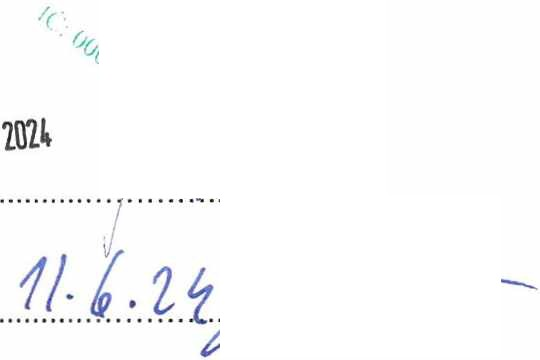 IČ: 000
2024
11.6.24